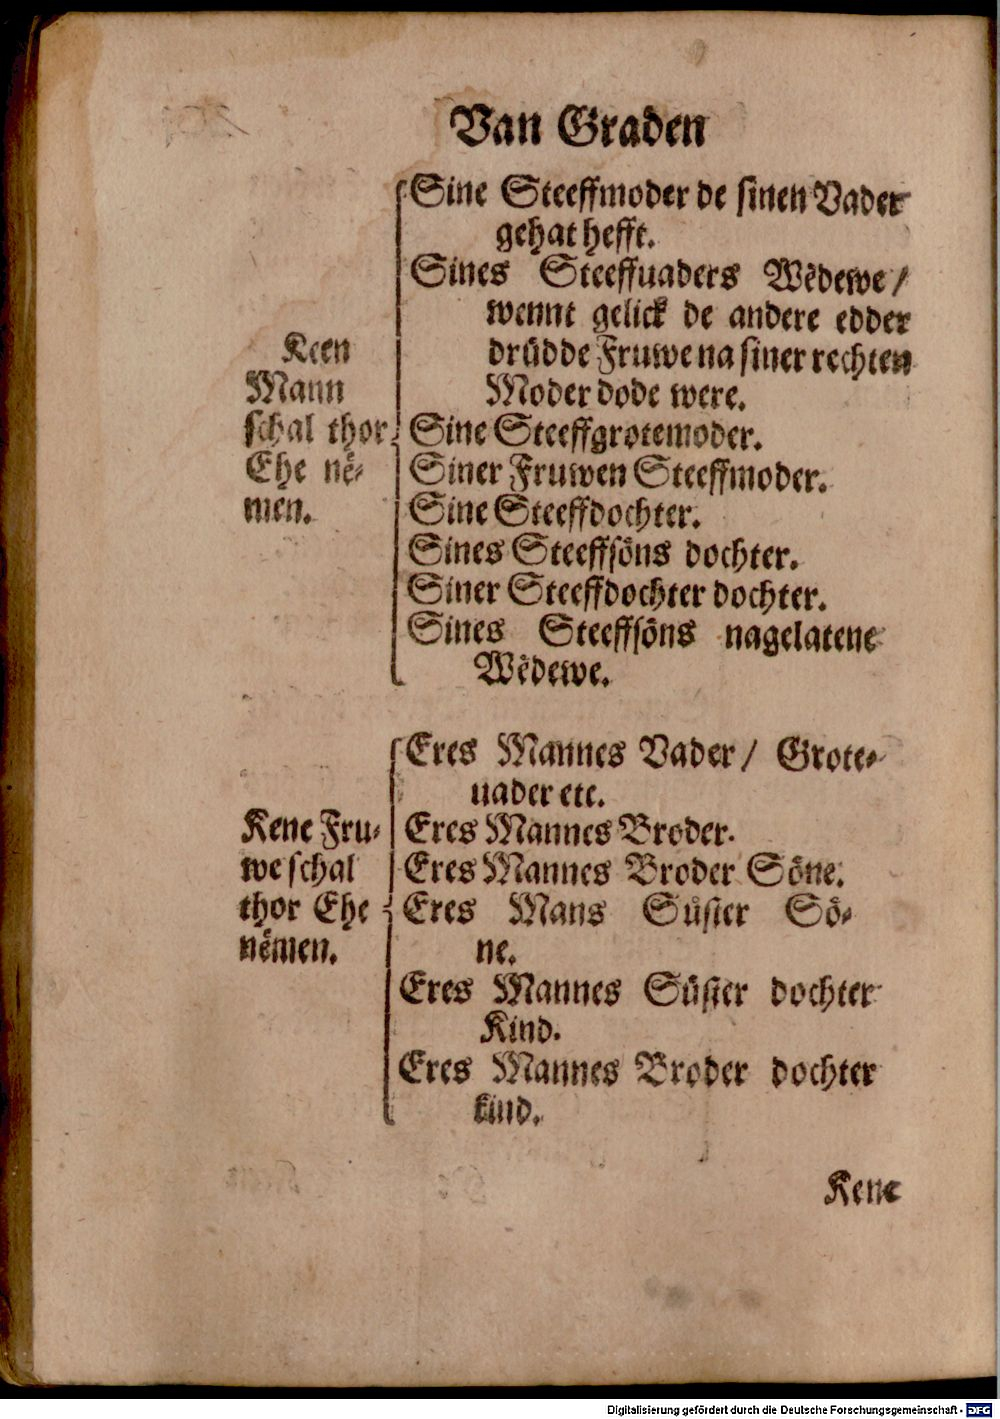 Van Graden
Keen
Mann
schal thor
Ehe nē⸗
men.
Sine Steeffmoder de sinen Vader
gehat hefft.
Sines Steeffuaders Wēdewe /
wennt gelick de andere edder
drüdde Fruwe na siner rechten
Moder dode were.
Sine Steeffgrotemoder.
Siner Fruwen Steeffmoder.
Sine Steeffdochter.
Sines Steeffsöns dochter.
Siner Steeffdochter dochter.
Sines Steeffsöns nagelatene
Wēdewe.
Kene Fru⸗
we schal
thor Ehe
nēmen.
Eres Mannes Vader / Grote⸗
uader etc.
Eres Mannes Broder.
Eres Mannes Broder Söne.
Eres Mans Süster Sö⸗
ne.
Eres Mannes Süster dochter
Kind.
Eres Mannes Broder dochter
kind.
Kene
Digitalisierung gefördert durch die Deutsche Forschungsgemeinschaft - DFG